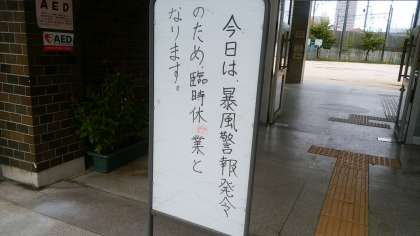 今日は、暴風警報発令
のため、臨時休業と
なります。
AED
AED